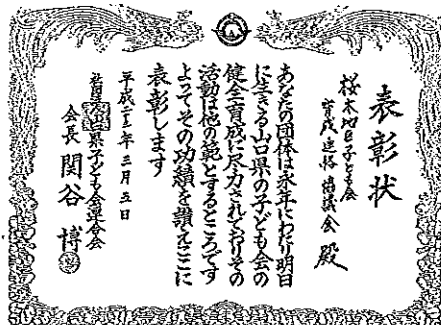 表彰状
桜木地区子ども会
育成連絡協議会 殿
あなたの団体は永年にわたり明日
に生きる山口県の子ども会の
健全育成に尽力されておりその
活動は他の範とするところです
よってその功績を讃えここに
表彰します
平成二十三年三月五日
山口県子ども会連合会
会長 関谷 博